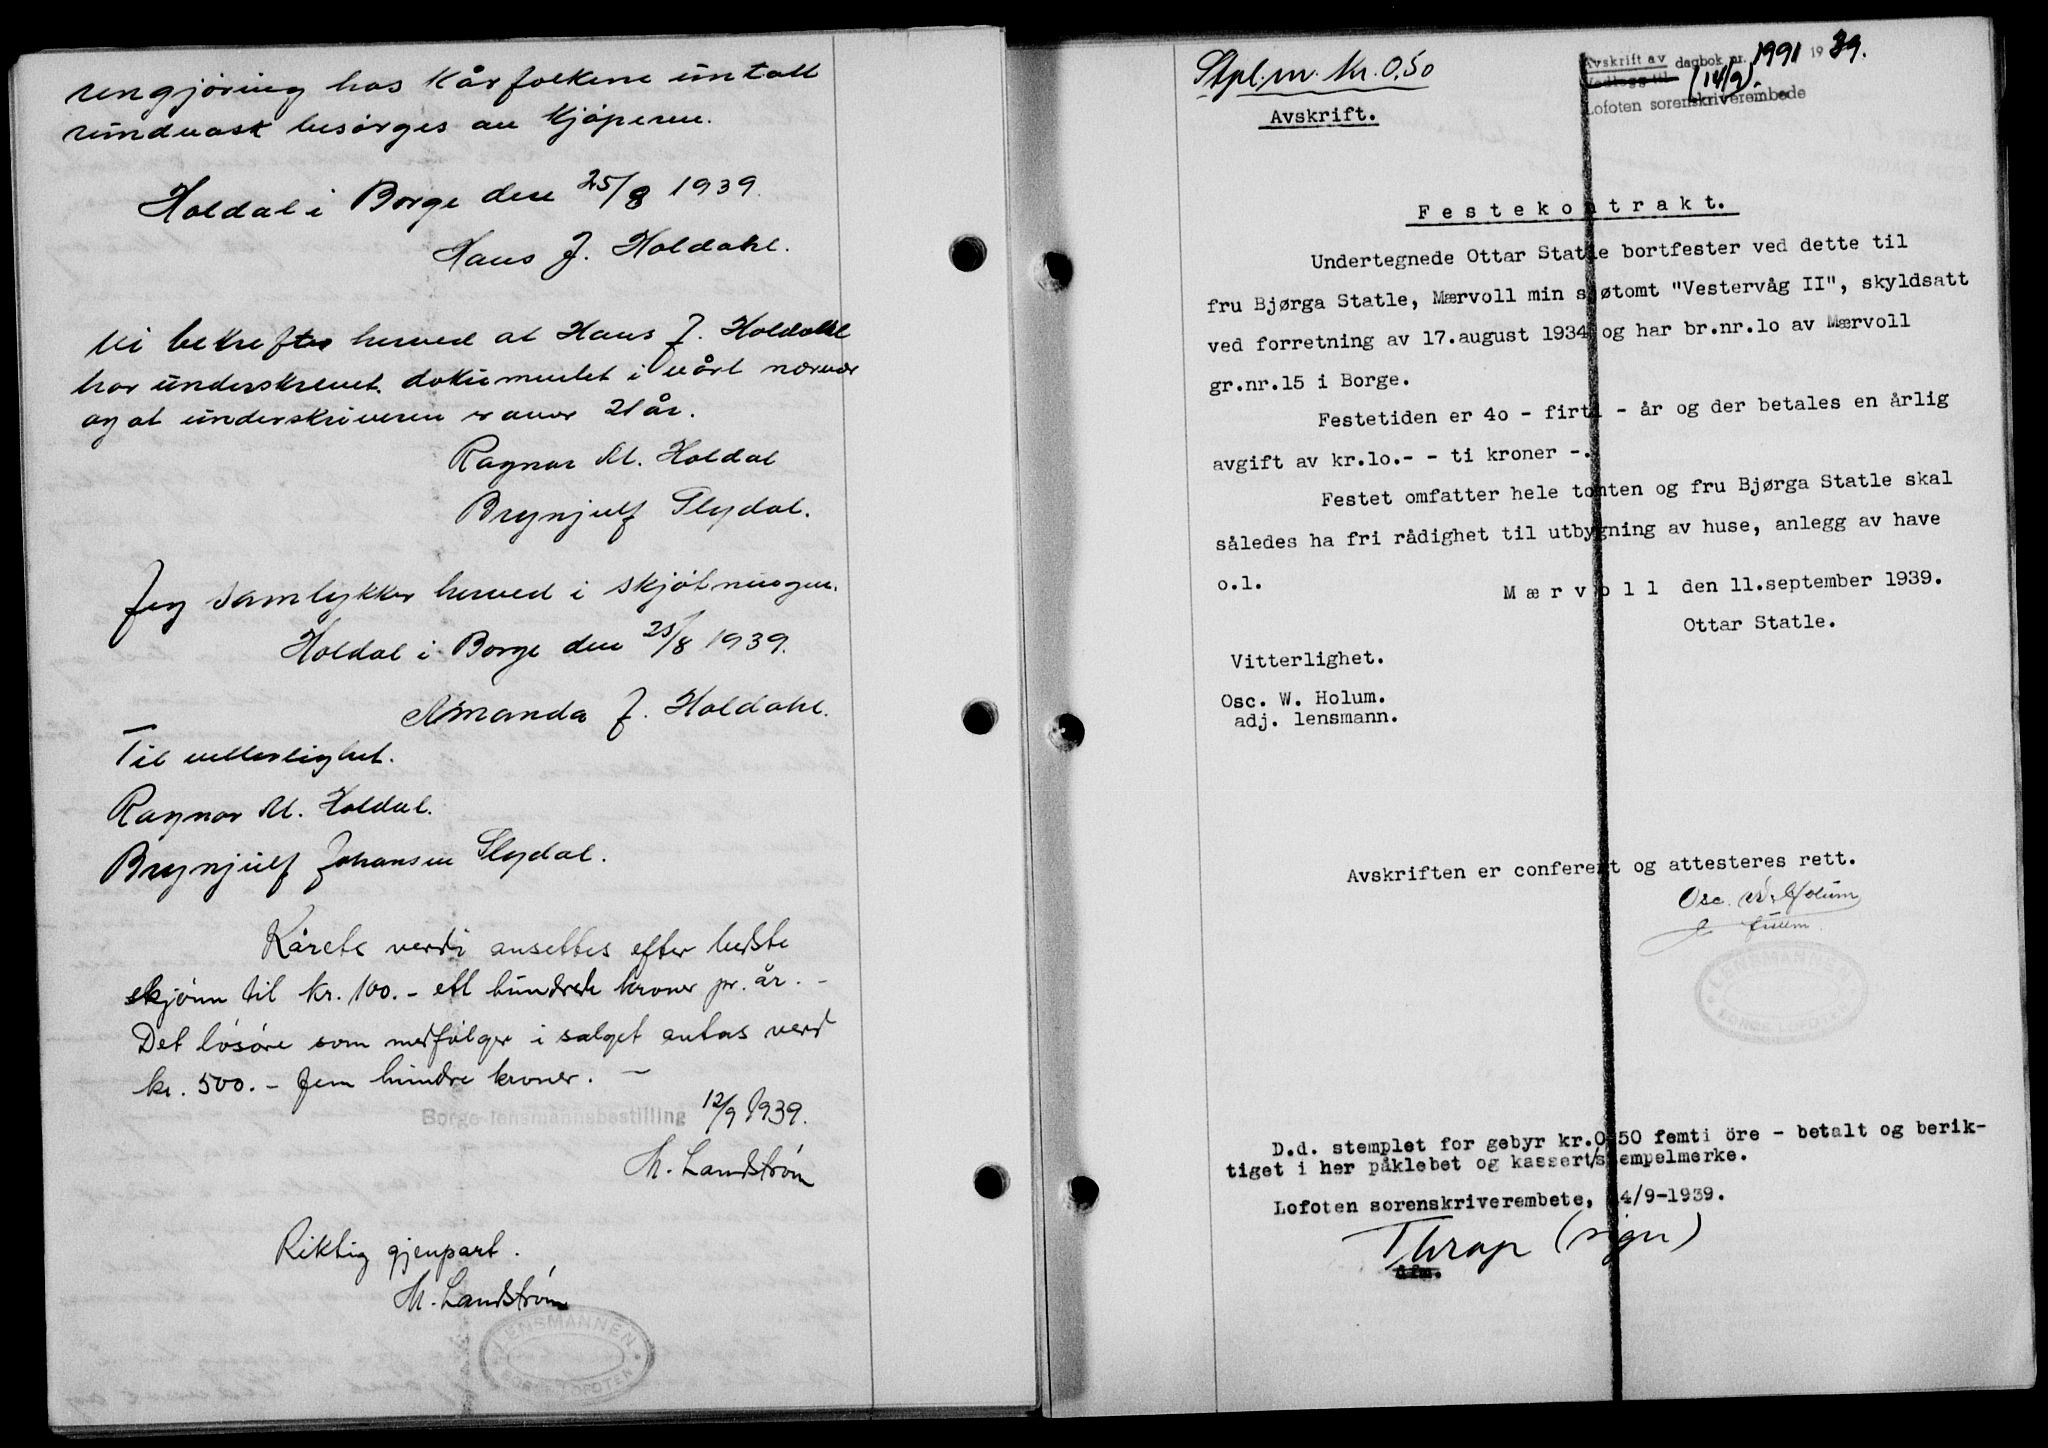 rengjøring hos kårfolkene untatt
rundvask besørges av kjøperen.
Holdal i Borge den 25/8 1939.
Hans J. Holdahl.
Vi bekrefter herved at Hans J. Holdahl
har underskrevet dokumentet i vårt nærvær
og at underskriveren er over 21 år.
Ragnar M. Holdal
Brynjulf Slydal.
Jeg samtykker herved i skjøtningen.
Holdal i Borge den 25/8 1939.
Amanda J. Holdahl.
Til vitterlighet.
Ragnar M. Holdal.
Brynjulf Johansen Slydal.
Kårets verdi ansettes efter beste
skjønn til kr. 100.- ett hundrede kroner pr. år. -
Det løsøre som medfølger i salget antas verd
kr. 500.- fem hundre kroner. -
Borge lensmannsbestilling 12/9 1939.
M. Landstrøm
Riktig gjenpart.
M. Landstrøm
LENSMANNEN
BORGE LOFOTEN
Stpl.m. kr. 0,50
Avskrift.
Avskrift av dagbok nr. 1991 1939.
Vedlegg til (14/9).
Lofoten sorenskriverembede
Festekontrakt.
Undertegnede Ottar Statle bortfester ved dette til
fru Bjørga Statle, Mærvoll min sjøtomt "Vestervåg II", skyldsatt
ved forretning av 17.august 1934 og har br.nr.lo av Mærvoll
gr.nr.15 i Borge.
Festetiden er 4o - firti - år og der betales en årlig
avgift av kr.lo.- - ti kroner -.
Festet omfatter hele tomten og fru Bjørga Statle skal
således ha fri rådighet til utbygning av huse, anlegg av have
o.l.
Mærvoll den 11.september 1939.
Ottar Statle.
Vitterlighet.
Osc. W. Holum.
adj. lensmann.
Avskriften er conferert og attesteres rett.
Osc. W. Holum
LENSMANNEN
BORGE LOFOTEN
D.d. stemplet for gebyr kr.0,50 femti öre - betalt og berik-
tiget i her påklebet og kassert/stempelmerke.
Lofoten sorenskriverembete, 14/9-1939.
Thrap (sign)
dfm.